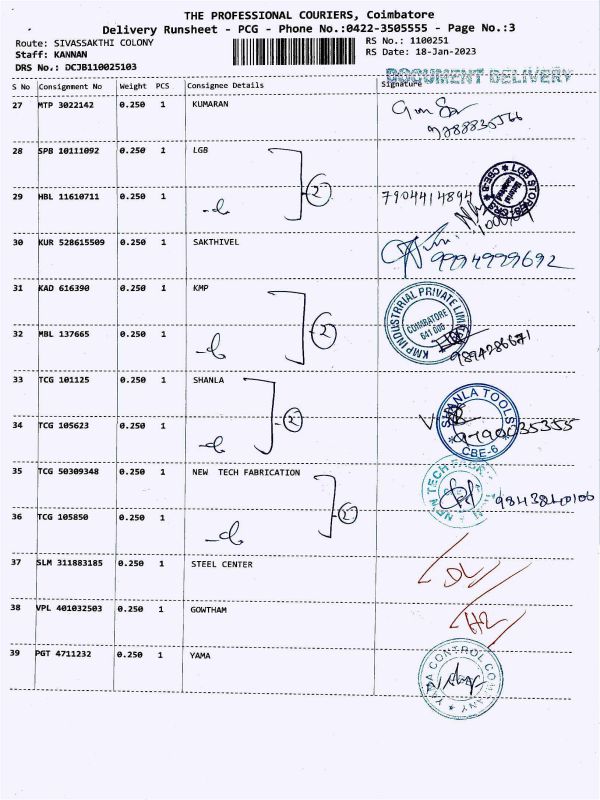 THE PROFESSIONAL COURIERS, Coimbatore
Delivery Runsheet - PCG - Phone No.:0422-3505555 - Page No.:3
Route: SIVASSAKTHI COLONY
Staff: KANNAN
DRS No.: DCJB110025103
RS No.: 1100251
RS Date: 18-Jan-2023
DOCUMENT DELIVERY
S No Consignment No Weight PCS Consignee Details Signature
27 MTP 3022142 0.250 1 KUMARAN
9788835566
28 SPB 10111092 0.250 1 LGB
2
LGB STORES
CBE-6
29 HBL 11610711 0.250 1 7904414894
30 KUR 528615509 0.250 1 SAKTHIVEL
9994999692
31 KAD 616390 0.250 1 KMP
2
KMP INDUSTRRIAL PRIVATE LIMITED
COIMBATORE
641 006
32 MBL 137665 0.250 1
9894286671
33 TCG 101125 0.250 1 SHANLA
2
SHANLA TOOLS
CBE-6
34 TCG 105623 0.250 1 9790035355
35 TCG 50309348 0.250 1 NEW TECH FABRICATION
2
NEW TECH
9843840106
36 TCG 105850 0.250 1
37 SLM 311883185 0.250 1 STEEL CENTER
DL
38 VPL 401032503 0.250 1 GOWTHAM
39 PGT 4711232 0.250 1 YAMA
YAMA CONTROL COMPANY